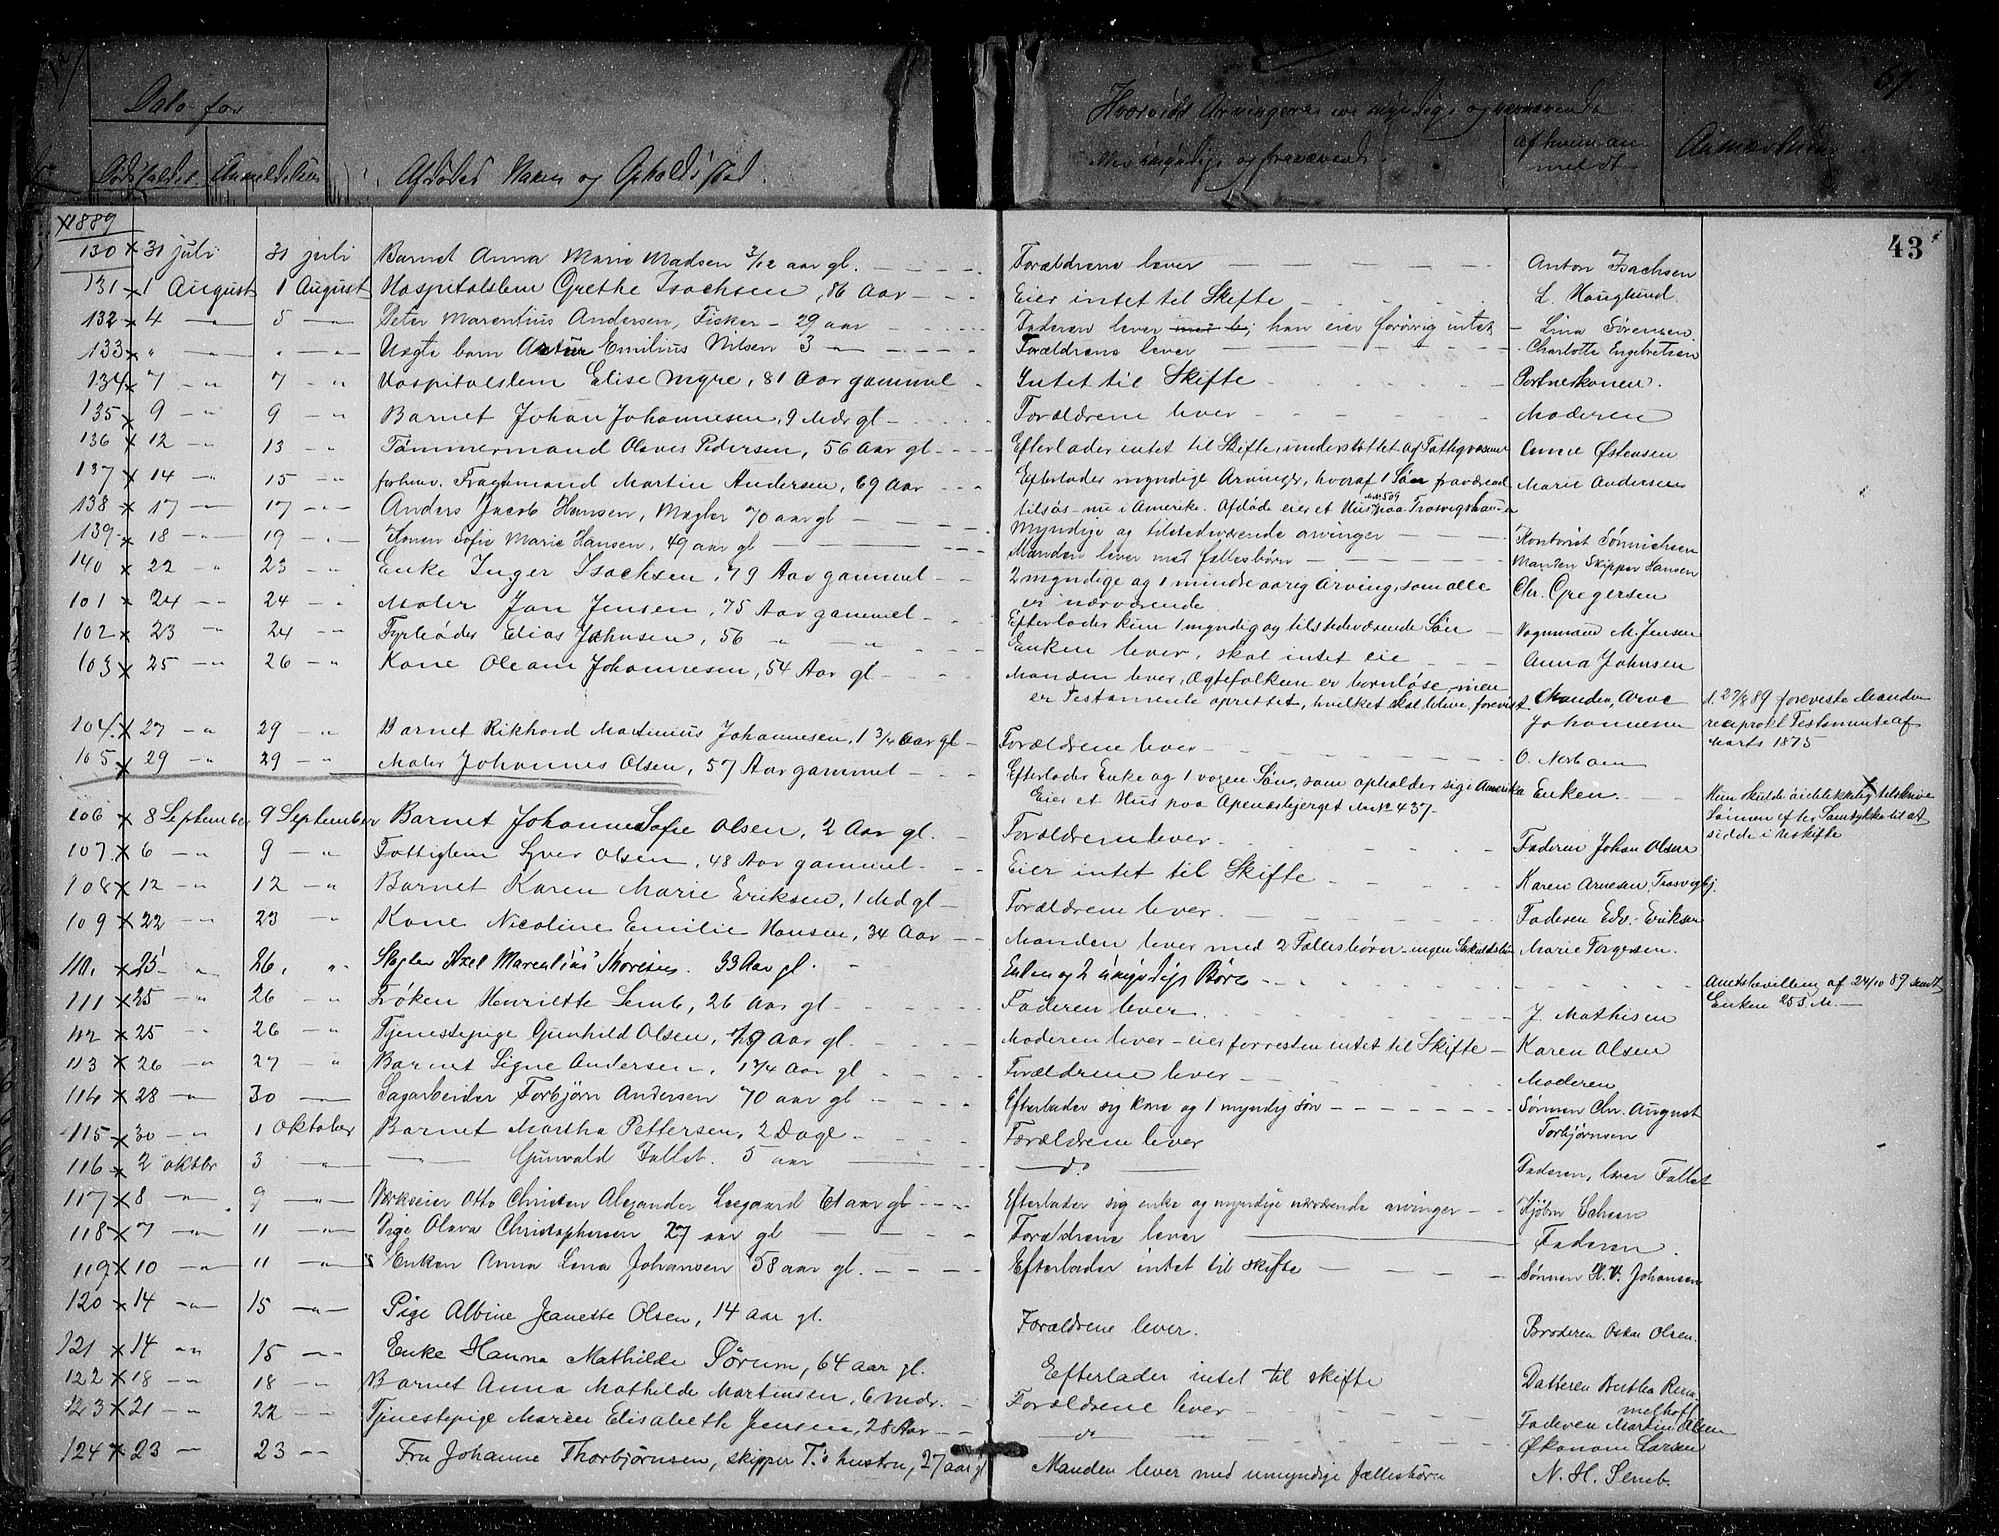 Dato for
Dødsfaldet. Anmeldelsen
Afdødes Navn og Opholdssted.
Hvorvidt Arvingerne ere myndige og nærværende
eller umyndige og fraværende.
af hvem an
meldt
Anmærkning
69.
43
1889
130 x 31 juli 31 juli Barnet Anna Marie Madsen 3/12 aar gl. Forældrene lever Anton Isachsen
131 x 1 August 1 August Hospitalslem Grethe Isachsen, 86 Aar Eier intet til Skifte L. Hauglund.
132 x 4 — 5 — Peter Marentius Andersen, Fisker - 29 aar Faderen lever han eier forøvrig intet Lina Sørensen
133 x " — " — Uægte barn Artur Emilius Nilsen 3 — Forældrene lever Charlotte Engebretsen
134 x 7 — " 7 — " Hospitalslem Elise Myre, 81 Aar gammel Intet til Skifte Portnerkonen.
135 x 9 — " 9 — " Barnet Johan Johannesen, 9 Mdr gl Forældrene lever Moderen
136 x 12 — " 13 " Tømmermand Olaves Pedersen, 56 Aar gl. Efterlader intet til Skifte, understøttet af Fattigvæsenet Anne Østensen
137 x 14 — " 15 — " forhenv. Fragtmand Martin Andersen, 69 Aar Efterlader myndige Arvinger, hvoraf 1 Søn fraværend Marie Andersen
tilsøs - nu i Amerika. Afdøde eier et Hus No 509 paa Trosvigshaugen
138 x 17 — " 17 — " Anders Jacob Hansen, Mægler 70 aar gl Myndige og tilstedeværende arvinger Kontorist Sønnichsen
139 x 18 — " 19 — " Konen Sofie Marie Hansen, 49 aar gl Manden lever med fællesbørn Manden Skipper Hansen
140 x 22 — " 23 — " Enke Inger Isachsen, 79 Aar gammel 2 myndige og 1 mindreaarig Arving, som alle Chr. Gregersen
er nærværende
101 x 24 — " 24 — " Maler Jan Jensen, 75 Aar gammel Efterlader kun 1 myndig og tilstedeværende Søn Vognmand M. Jensen
102 x 23 — " 24 — " Fyrbøder Elias Johnsen, 56 " — " Enken lever, skal intet eie Anna Johnsen
103 x 25 — " 26 — " Kone Oleane Johannesen, 54 Aar gl Manden lever, Ægtefolkene er barnløse, men Manden, Arve
er Testamente oprettet, hvilket skal blive forevist Johannesen
d. 27/8 89 foreviste Manden
reciprokt Testamente af
Marts 1875
104 x 27 — " 29 — " Barnet Rikhard Martinius Johannesen, 1 3/4 Aar gl Forældrene lever O. Norbom
105 x 29 — " 29 — " Maler Johannes Olsen, 57 Aar gammel Efterlader Enke og 1 voxen Søn, som opholder sig i Amerika Enken.
Eier et Hus paa Apenæsbjerget No 437.
Hun skulde tilskrive
Sønnen efter Samtykke til at
sidde i Uskifte
106 x 8 September 9 September Barnet Johanne Sofie Olsen, 2 Aar gl. Forældrene lever. Faderen Johan Olsen
107 x 6 — " 9 — " Fattiglem Syver Olsen, 48 Aar gammel Eier intet til Skifte Karen Arnesen, Trosvigbj.
108 x 12 — " 12 — " Barnet Karen Marie Eriksen, 1 Md gl Forældrene lever. Faderen Edv. Eriksen
109 x 22 — " 23 " Kone Nicoline Emilie Hansen, 34 Aar Manden lever med 2 Fællesbørn - ingen Særkuldsbørn Marie Torgersen.
110. x 25 " 26. " Axel Marentius Thoresen. 33 Aar gl. Enken og 2 umyndige Børn
Amtsbevilling af 24/10 89 sendt
Enken 253 M.
111 x 25 — " 26 " Frøken Henriette Semb, 26 Aar gl Faderen lever. J. Mathisen
112 x 25 " 26 — " Tjenestepige Gunhild Olsen, 19 Aar gl. Moderen lever - eier forresten intet til Skifte Karen Olsen
113 x 26 — " 27 " Barnet Signe Andersen, 1 3/4 Aar gl Forældrene lever Moderen
114 x 28 — 30 — Sagarbeider Torbjørn Andersen 70 aar gl Efterlader sig kone og 1 myndig søn Sønnen Chr. August
Torbjørnsen
115 x 30 — " 1 Oktober Barnet Martha Pettersen, 2 Dage Forældrene lever
116 x 2 oktbr 3 — — Gunvald Fallet. 5 aar — do — Faderen, Iver Fallet
117 x 8 — 9 — Værkseier Otto Christen Alexander Leegaard 61 aar gl Efterlader sig enke og myndige nærværende arvinger
118 x 7 — 11 — Pige Olava Christophersen 27 aar gl Forældrene lever Faderen.
119 x 10 — 11 — Enken Anna Lena Johansen 58 aar gl. Efterlader intet til skifte Sønnen H. V. Johansen
120 x 14 — 15 — Pige Albine Jeanette Olsen, 14 aar gl. Forældrene lever. Broderen Oskar Olsen.
121 x 14 — 15 — Enke Hanna Mathilde Sørum, 64 aar gl. Eefterlader intet til skifte Datteren Bertha Rem
melhoff
122 x 18 — " 18 — " Barnet Anna Mathilde Martinsen, 6 Mdr. Forældrene lever Faderen Martin Olsen
123 x 21 — " 22 — " Tjenestepige Maren Elisabeth Jensen, 28 Aar — do — Økonom Larsen
124 x 23 — 23 — Fru Johanne Thorbjørnsen, skipper T.'s hustru, 27 aar gl Manden lever med umyndige fællesbørn N. H. Semb.